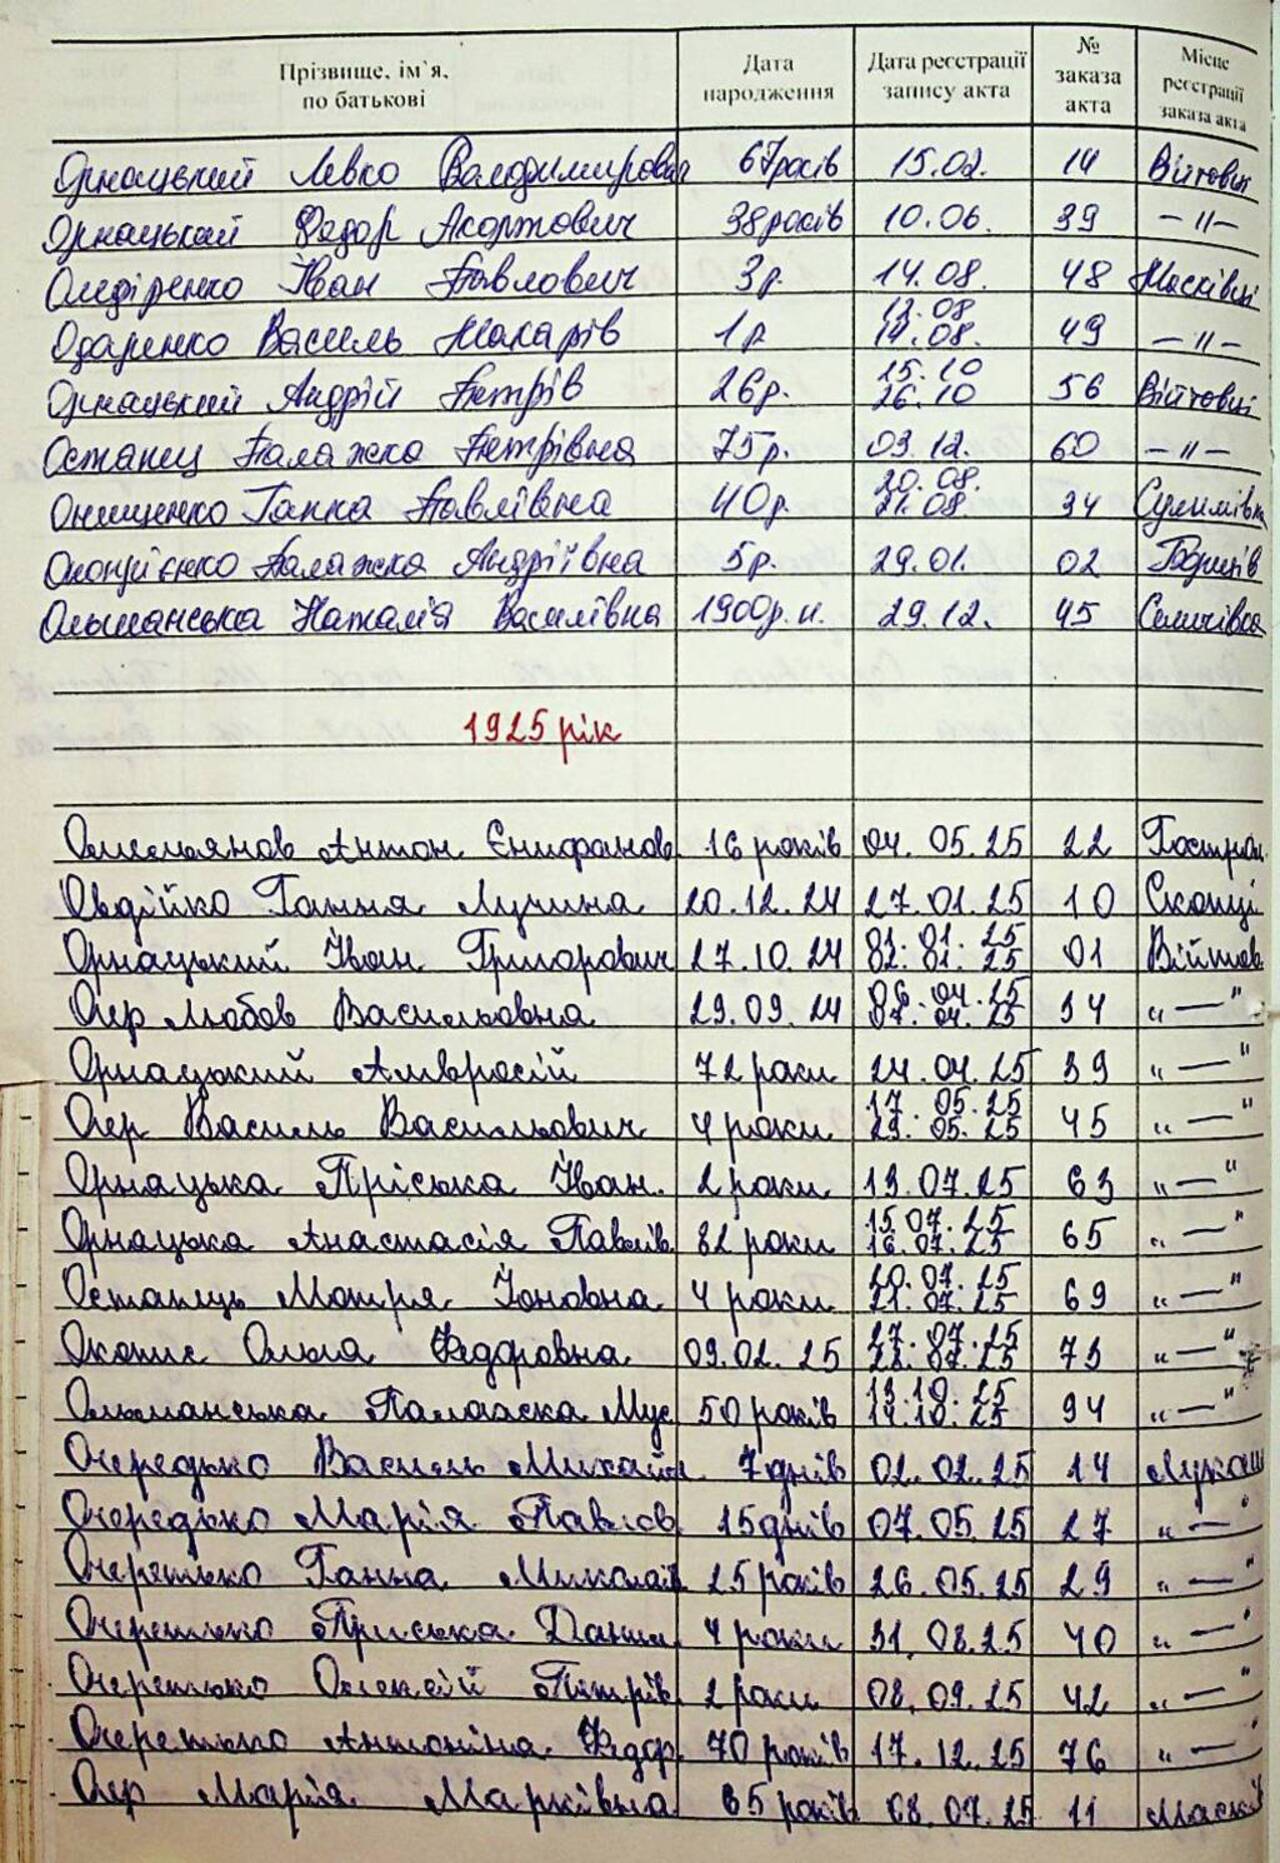 Прізвище, ім'я, по батькові Дата народження Дата реєстрації запису акта № заказа акта Місце реєстрації заказа акта
Орнацький Левко Володимирович 67 років 15.02. 14 Війтовці
Орнацький Федор 38 років 10.06. 39 –"–
Іван Павлович 3 р. 14.08. 48 Масківці
Одаренко Василь Макарів 1 р. 13.08 14.08. 49 –"–
Орнацький Андрій Петрів 26 р. 15.10 26.10 56 Війтовці
Останец Палажка Петрівна 75 р. 03.12. 60 –"–
Онищенко Ганна Павлівна 40 р. 20.08. 21.08. 34 Сулимівка
Палажка Андріївна 5 р. 29.01. 02
Ольшанська Наталія Василівна 1900 р.н. 29.12. 45 Селичівка
1925 рік
Омельянов Антон Єпифанов. 16 років 04.05.25 22
Овдійко Ганна Лукина 20.12.24 27.01.25 10 Скопці
Орнацький Іван Григорович 27.10.24 01.25 01 Війтов.
Оер Любов Васильовна 29.09.24 06.04.25 07.04.25 34 "—"
Орнацький Амвросій 72 роки 24.04.25 39 "—"
Оер Василь Васильович 4 роки 17.05.25 23.05.25 45 "—"
Орнацька Пріська Іван. 2 роки 13.07.25 63 "—"
Орнацька Анастасія Павлів. 82 роки 15.07.25 16.07.25 65 "—"
Останець Мотря Іоновна 4 роки 20.07.25 21.07.25 69 "—"
Окопис Ольга Федоровна 09.02.25 27.07.25 28.07.25 73 "—"
Ольманська Палажка Мус 50 років 13.10.25 14.10.25 94 "—"
Очередько Василь Михайл. 7 днів 02.02.25 14 Лукаш
Очередько Марія Павлов. 15 днів 07.05.25 27 "—"
Очеретько Ганна Миколаїв 25 років 26.05.25 29 "—"
Очеретько Приська Данил. 4 роки 31.08.25 40 "—"
Очеретько Олексій Петрів. 2 роки 08.09.25 42 "—"
Очеретько Антоніна Федор. 70 років 17.12.25 76 "—"
Оер Марія Марківна 65 років 08.07.25 11 Масків